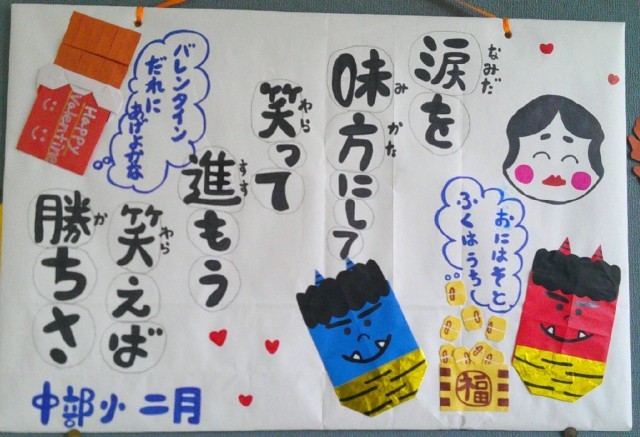 涙を
なみだ
味方にして
みかた
笑って
わら
進もう
すす
笑えば
わら
勝ちさ
か
おにはそと
ふくはうち
福
バレンタイン
だれに
あげよかな
Happy
Valentine
中部小 二月